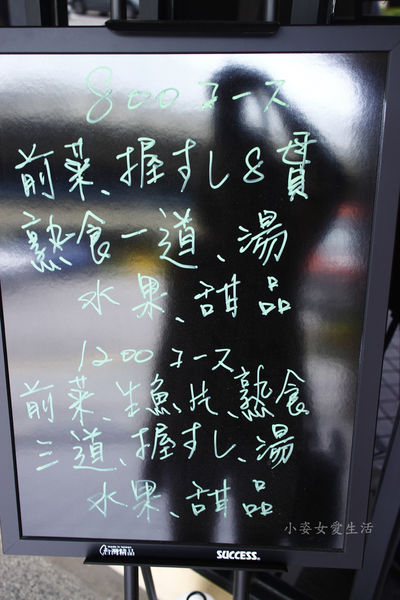 800コース
前菜、握すし8貫
熟食一道、湯
水果、甜品
1200コース
前菜、生魚片、熟食
三道、握すし、湯
水果、甜品
小姿女愛生活
台灣精品
SUCCESS